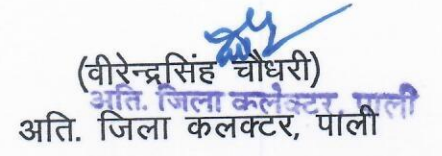 (वीरेन्द्रसिंह चौधरी)
अति. जिला कलेक्टर, पाली
अति. जिला कलक्टर, पाली